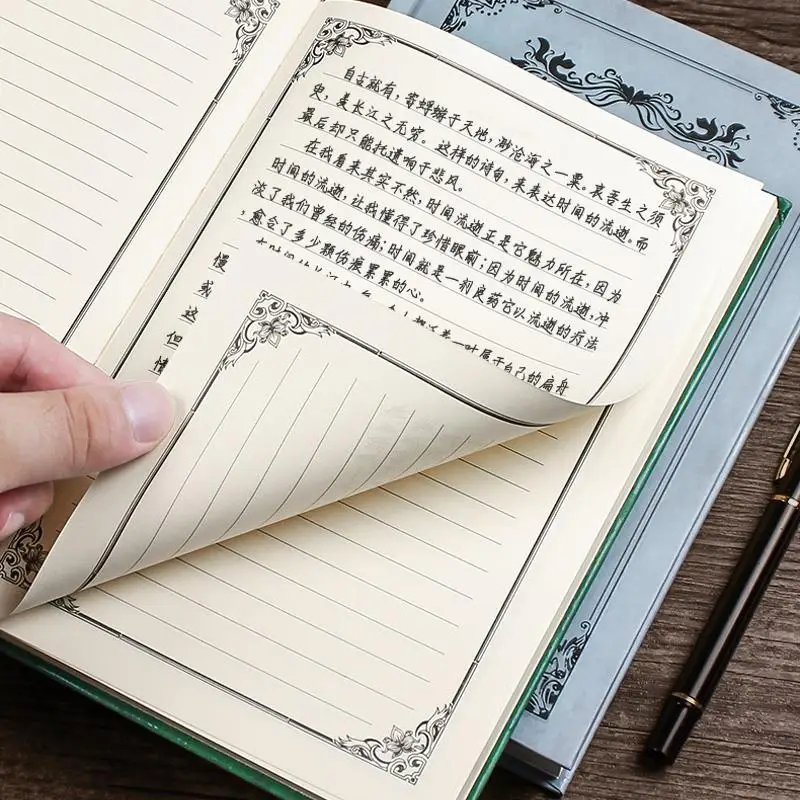 自古就有，寄蜉蝣于天地，渺沧海之一粟。哀吾生之须
臾，羡长江之无穷。这样的诗句，来表达时间的流逝。而
最后却只能托遗响于悲风。
在我看来其实不然，时间流逝正是它魅力所在，因为
时间的流逝，让我懂得了珍惜眼前；因为时间的流逝，冲
淡了我们曾经的伤痛；时间就是一剂良药它以流逝的疗法
，愈合了多少颗伤痕累累的心。
一叶属于自己的扁舟
慢
或
这
但
情